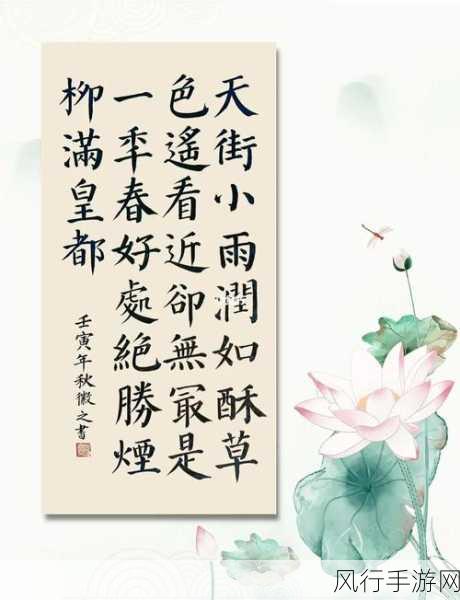 天街小雨潤如酥草
色遙看近卻無冣是
一秊春好處絶勝煙
柳滿皇都
壬寅年秋徽之書
风行手游网